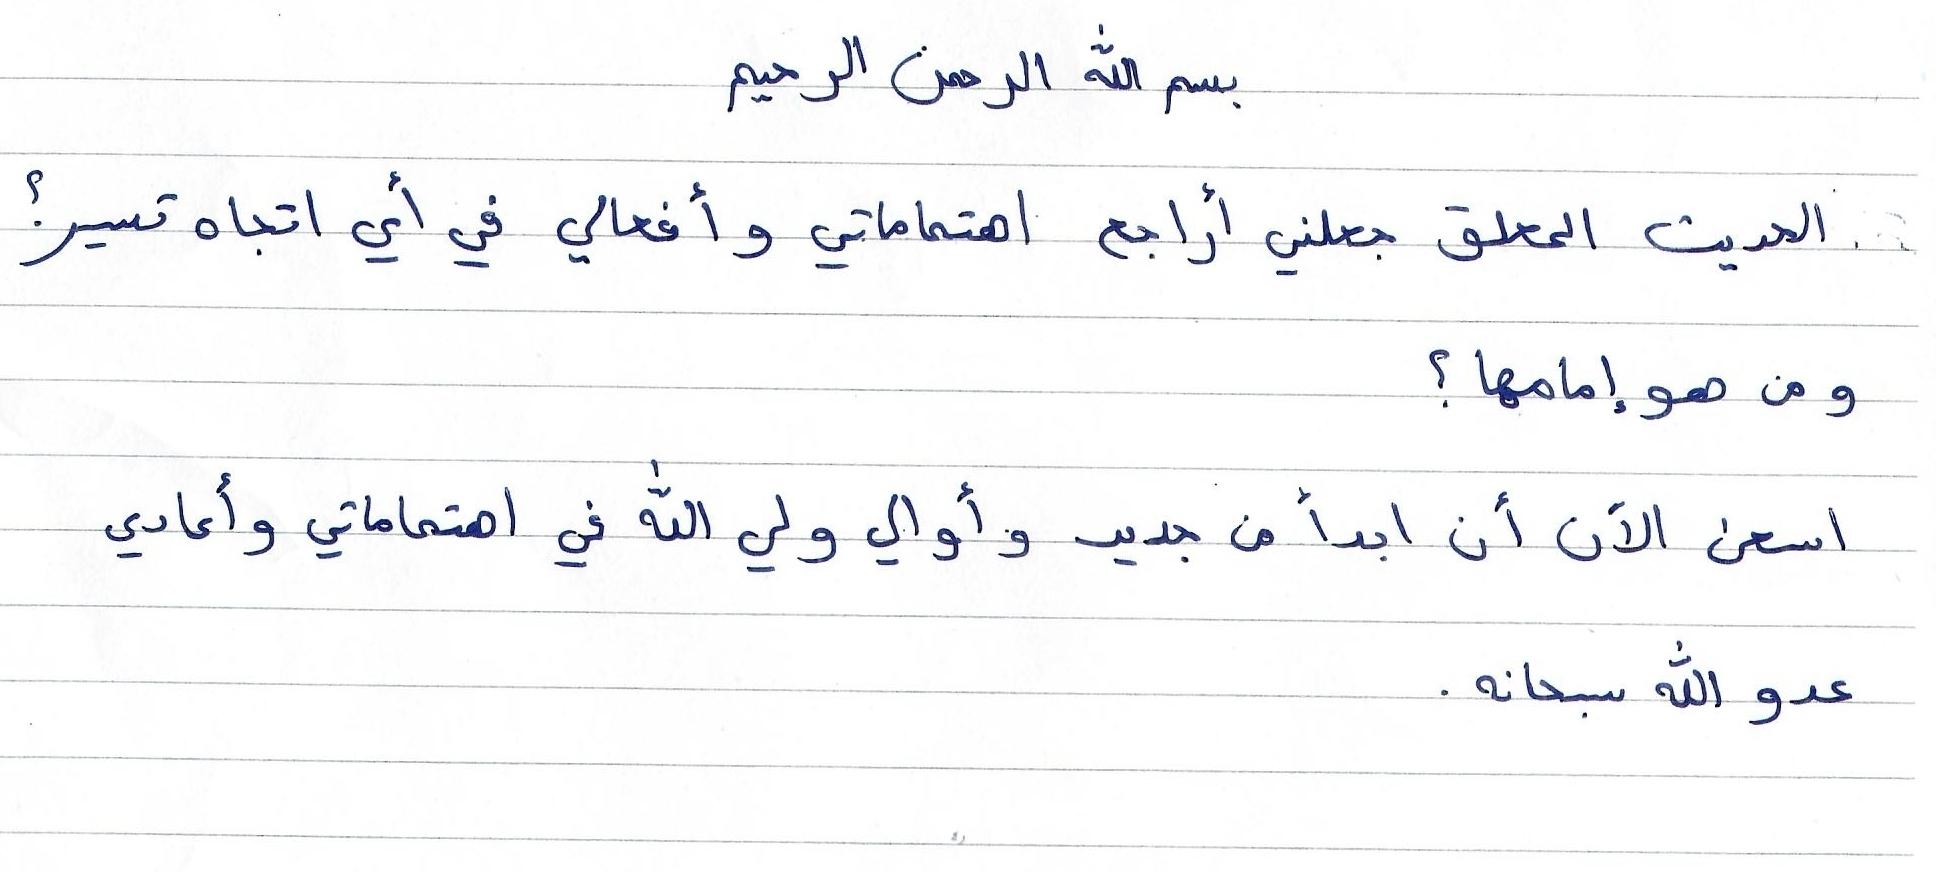 بسم الله الرحمن الرحيم
الحديث المعلق جعلني أراجع اهتماماتي وأفعالي في أي اتجاه تسير؟
ومن هو إمامها؟
اسعى الآن أن ابدأ من جديد وأوالي ولي الله في اهتماماتي وأعادي
عدو الله سبحانه.